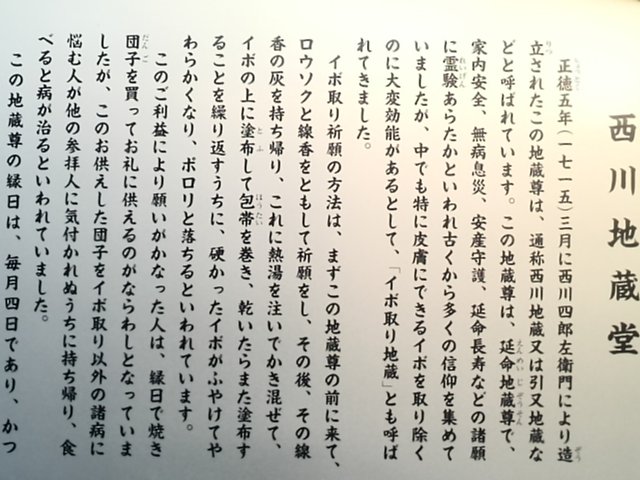 西川地蔵堂
正徳五年(一七一五)三月に西川四郎左衛門により造
立されたこの地蔵尊は、通称西川地蔵又は引又地蔵な
どと呼ばれています。この地蔵尊は、延命地蔵尊で、
家内安全、無病息災、安産守護、延命長寿などの諸願
に霊験あらたかといわれ古くから多くの信仰を集めて
いましたが、中でも特に皮膚にできるイボを取り除く
のに大変効能があるとして、「イボ取り地蔵」とも呼ば
れてきました。
イボ取り祈願の方法は、まずこの地蔵尊の前に来て、
ロウソクと線香をともして祈願をし、その後、その線
香の灰を持ち帰り、これに熱湯を注いでかき混ぜて、
イボの上に塗布して包帯を巻き、乾いたらまた塗布す
ることを繰り返すうちに、硬かったイボがふやけてや
わらかくなり、ポロリと落ちるといわれています。
このご利益により願いがかなった人は、縁日で焼き
団子を買ってお礼に供えるのがならわしとなっていま
したが、このお供えした団子をイボ取り以外の諸病に
悩む人が他の参拝人に気付かれぬうちに持ち帰り、食
べると病が治るといわれていました。
この地蔵尊の縁日は、毎月四日であり、かつ